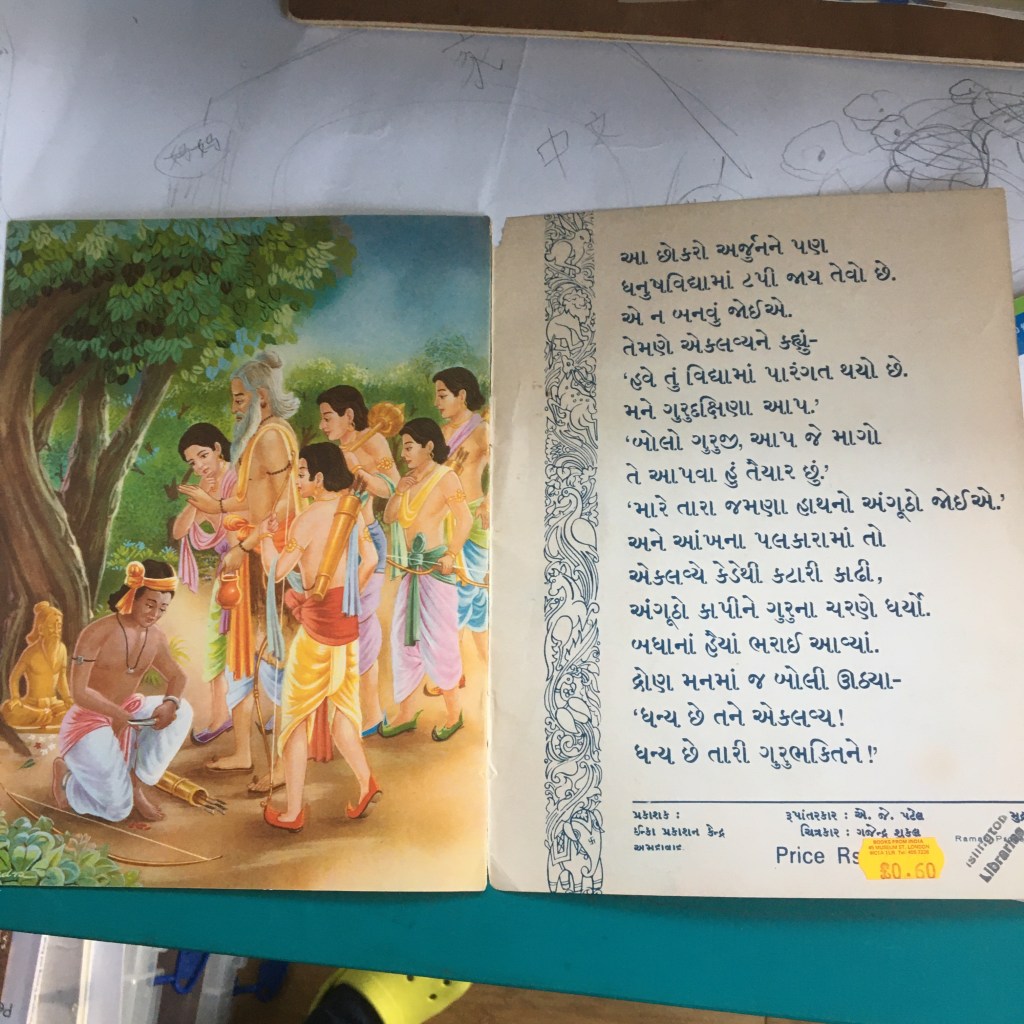 家
中文
妈妈
આ છોકરો અર્જુનને પણ
ધનુષવિદ્યામાં ટપી જાય તેવો છે.
એ ન બનવું જોઈએ.
તેમણે એકલવ્યને કહ્યું-
‘હવે તું વિદ્યામાં પારંગત થયો છે.
મને ગુરુદક્ષિણા આપ.’
‘બોલો ગુરુજી, આપ જે માગો
તે આપવા હું તૈયાર છું.’
‘મારે તારા જમણા હાથનો અંગૂઠો જોઈએ.’
અને આંખના પલકારામાં તો
એકલવ્યે કેડેથી કટારી કાઢી,
અંગૂઠો કાપીને ગુરુના ચરણે ધર્યો.
બધાનાં હૈયાં ભરાઈ આવ્યાં.
દ્રોણ મનમાં જ બોલી ઊઠયા-
‘ધન્ય છે તને એકલવ્ય!
ધન્ય છે તારી ગુરુભકિતને!’
પ્રકાશક :
પ્રકાશન કેન્દ્ર
અમદાવાદ
રૂપાંતરકાર : એ. જે. પટેલ
ચિત્રકાર : ગજેન્દ્ર શુકલ
Price Rs
BOOKS FROM INDIA
MUSEUM ST. LONDON
£0.60
Libraries